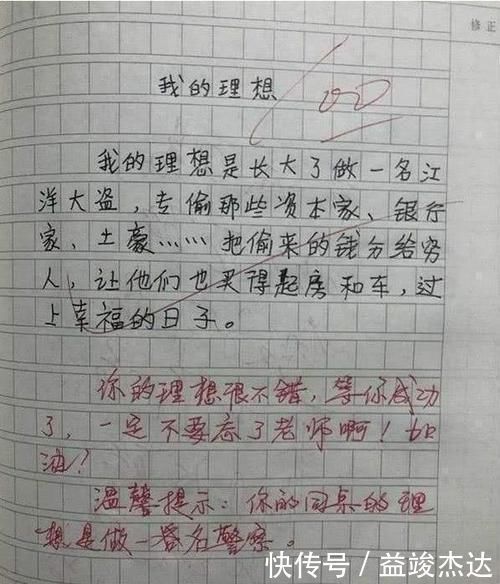 修正
我的理想
100
我的理想是长大了做一名江
洋大盗，专偷那些资本家、银行
家、土豪……把偷来的钱分给穷
人，让他们也买得起房和车，过
上幸福的日子。
你的理想很不错，等你成功
了，一定不要忘了老师啊！加
油！
温馨提示：你的同桌的理
想是做一番名警察。
快传号／益竣杰达